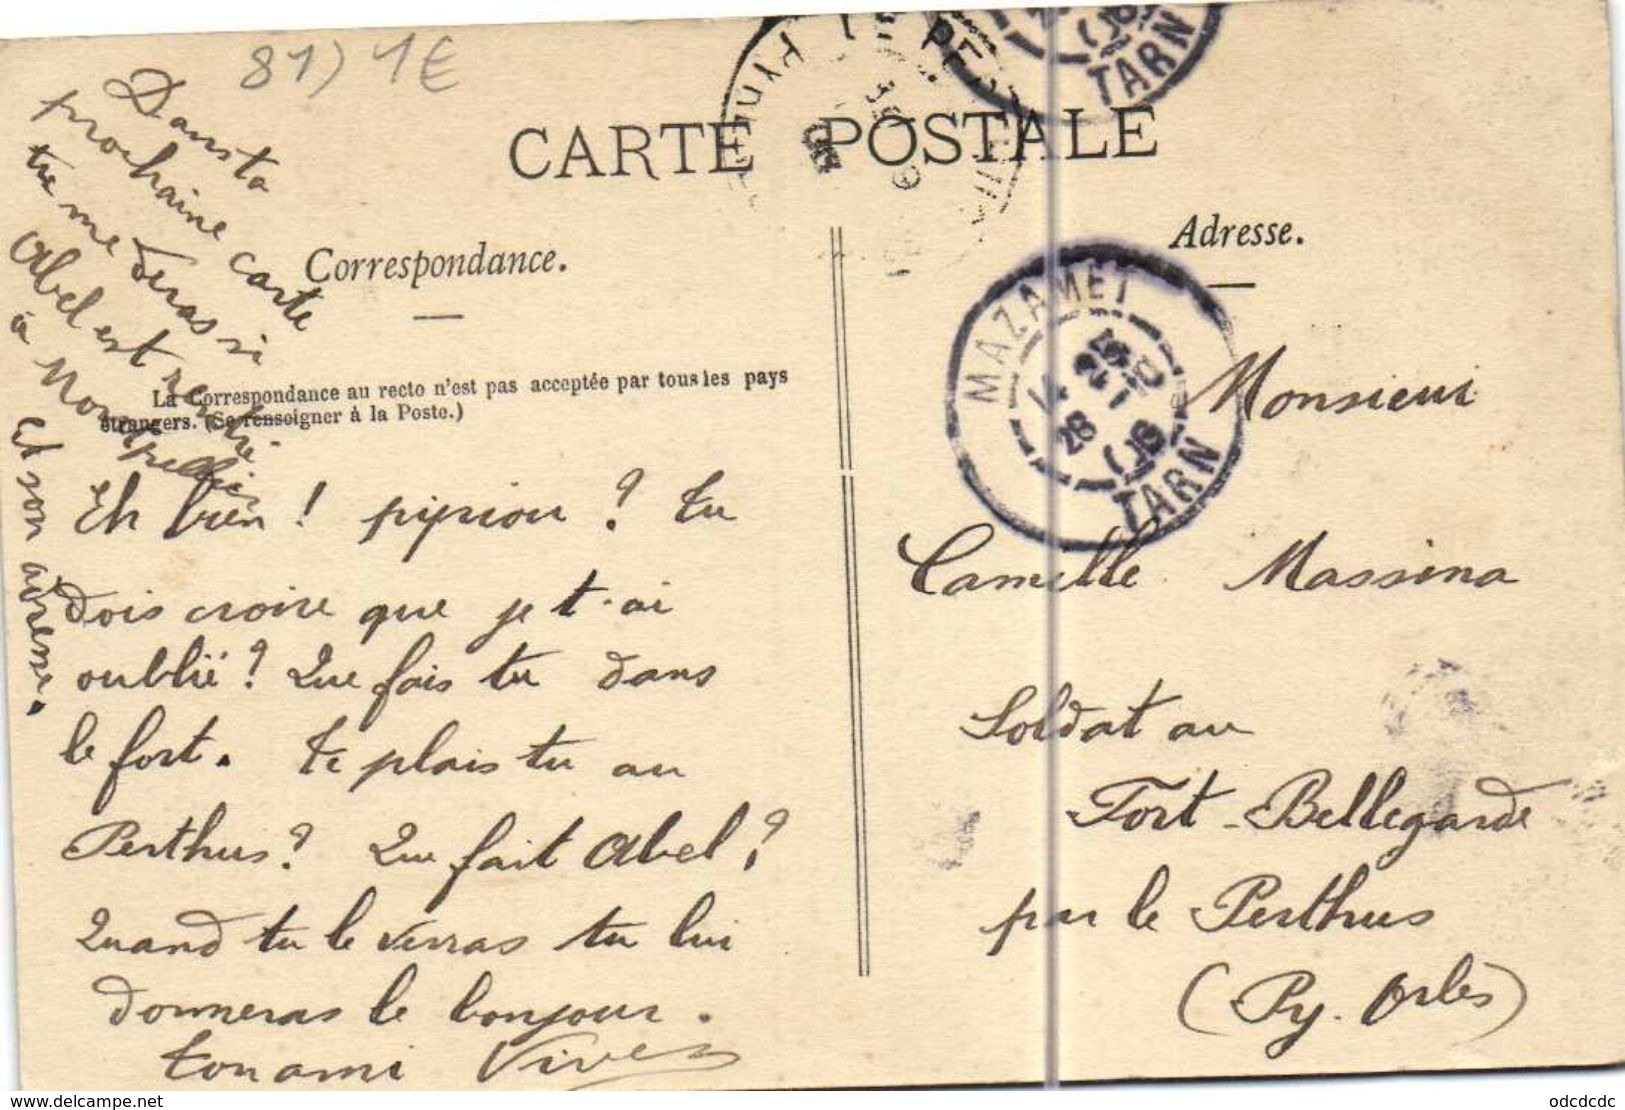 81) 1€
CARTE POSTALE
Correspondance.
Adresse.
La Correspondance au recto n'est pas acceptée par tous les pays
étrangers. (Se renseigner à la Poste.)
Dans ta
prochaine carte
tu me diras si
Abel est rentré
à Montpellier
Et son adresse.
Eh bien ! pipiou ? tu
dois croire que je t'ai
oublié ? Que fais tu dans
le fort. te plais tu au
Perthus ? Que fait Abel ?
Quand tu le verras tu lui
donneras le bonjour.
ton ami Vives
MAZAMET
TARN
TARN
Monsieur
Camille Massina
Soldat au
Fort-Bellegarde
par le Perthus
(Py. Orles)
delcampe.net
odcdcdc